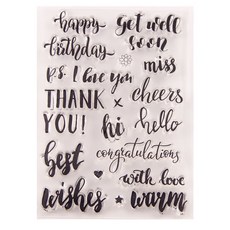 happy
birthday
get well
soon
p.s. I love you
miss
THANK
YOU!
x
cheers
hi
hello
best
congratulations
with love
wishes
warm